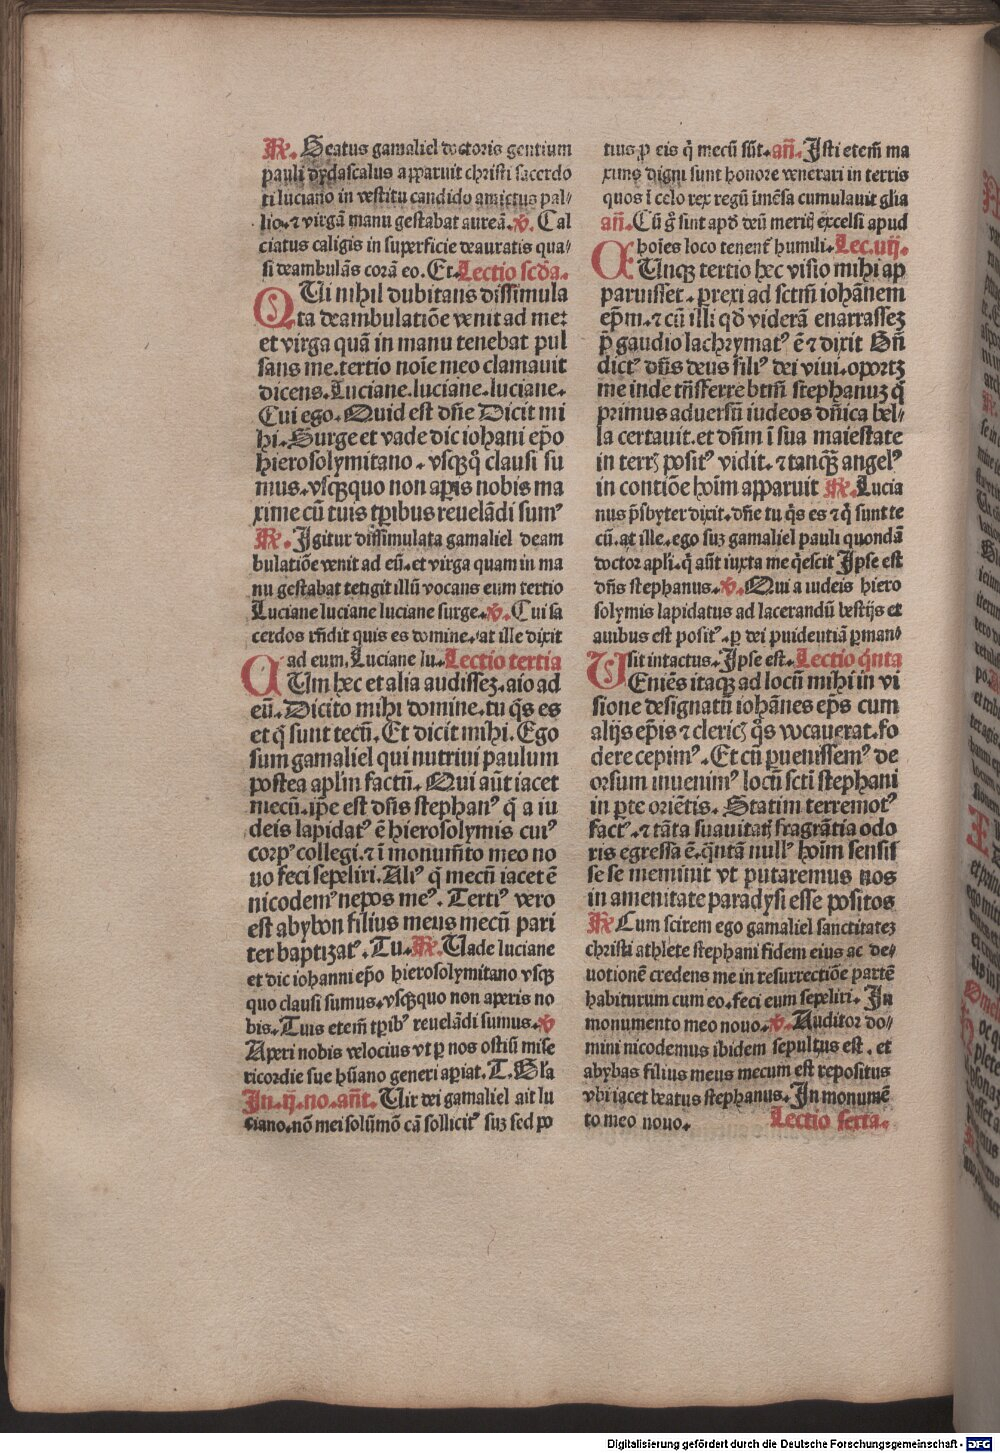 R. Beatus gamaliel doctoris gentium
pauli dydascalus apparuit christi sacerdo
ti luciano in vestitu candido amictus pal-
lio. ⁊ virgā manu gestabat aureā. v. Cal
ciatus caligis in superficie deauratis qua-
si deambulās corā eo. Et. Lectio scďa.
QUi nihil dubitans dissimula
ta deambulatiōe venit ad me:
et virga quā in manu tenebat pul
sans me. tertio noīe meo clamauit
dicens. Luciane. luciane. luciane.
Cui ego. Quid est dn̄e Dicit mi
hi. Surge et vade dic iohani ep̄o
hierosolymitano. vsq̄ꝙ clausi su
mus. vsq̄quo non apis nobis ma
xime cū tuis tp̄ribus reuelādi sumꝰ
R. Igitur dissimulata gamaliel deam
bulatiōe venit ad eū. et virga quam in ma
nu gestabat tetigit illū vocans eum tertio
Luciane luciane luciane surge. v. Cui sa
cerdos rn̄dit quis es domine. at ille dixit
ad eum. Luciane lu. Lectio tertia
CUm hec et alia audissez. aio ad
eū. Dicito mihi domine. tu q̄s es
et q̄ sunt tecū. Et dicit mihi. Ego
sum gamaliel qui nutriui paulum
postea apl̄m factū. Qui aūt iacet
mecū. ip̄e est dn̄s stephanꝰ q̄ a iu
deis lapidatꝰ ē hierosolymis cuiꝰ
corpꝰ collegi. ⁊ ī monum̄to meo no
uo feci sepeliri. Aliꝰ q̄ mecū iacet ē
nicodemꝰ nepos meꝰ. Tertiꝰ vero
est abybon filius meus mecū pari
ter baptizatꝰ. Tu. R. Uade luciane
et dic iohanni ep̄o hierosolymitano vsq̄
quo clausi sumus. vsq̄quo non aperis no
bis. Tuis etem̄ tp̄ribꝰ reuelādi sumus. v
Aperi nobis velocius vt ꝑ nos ostiū mise
ricordie sue hūano generi apiat. T. Gla
In .ij. no. an̄t. Uir dei gamaliel ait lu
ciano. nō mei solūmō cā sollicitꝰ suz sed ꝓ
tius ꝓ eis q̄ mecū sūt. an̄. Isti etem̄ ma
xime digni sunt honore venerari in terris
quos ī celo rex regū īmēsa cumulauit glia
an̄. Cū ḡ sint apđ deū meritis excelsi apud
hoīes loco tenent humili. Lec. iiij.
CUnq̄ tertio hec visio mihi ap
paruisset. prexi ad sctm̄ iohānem
ep̄m. ⁊ cū illi qđ viderā enarrassez
p̄ gaudio lachrymatꝰ ē ⁊ dixit Bn̄
dictꝰ dn̄s deus filiꝰ dei viui. oportz
me inde trn̄sferre btm̄ stephanuz q̄
primus aduersū iudeos dn̄ica bel-
la certauit. et dn̄m ī sua maiestate
in terrꝭ positꝰ vidit. ⁊ tanq̄ angelꝰ
in contiōe hoīm apparuit R. Lucia
nus p̄sbyter dixit. dn̄e tu q̄s es ⁊ q̄ sunt te
cū. at ille. ego suz gamaliel pauli quondā
doctor apl̄i. q̄ aūt iuxta me q̄escit Ipse est
dn̄s stephanus. v. Qui a iudeis hiero
solymis lapidatus ad lacerandū bestijs et
auibus est positꝰ. ꝑ dei ꝓuidentiā ꝑman-
sit intactus. Ipse est. Lectio q̄nta
UEniēs itaq̄ ad locū mihi in vi
sione designatū iohānes ep̄s cum
alijs ep̄is ⁊ clericꝭ q̄s vocauerat. fo
dere cepimꝰ. Et cū ꝑuenissemꝰ de
orsum inuenimꝰ locū scti stephani
in ꝑte oriētis. Statim terremotꝰ
factꝰ. ⁊ tāta suauitatꝭ fragrātia odo
ris egressa ē. q̄ntā nullꝰ hoīm sensis
se se meminit vt putaremus nos
in amenitate paradysi esse positos
R Cum scirem ego gamaliel sanctitatez
christi athlete stephani fidem eius ac de-
uotionē credens me in resurrectiōe partē
habiturum cum eo. feci eum sepeliri. In
monumento meo nouo. v. Auditor do-
mini nicodemus ibidem sepultus est. et
abybas filius meus mecum est repositus
vbi iacet beatus stephanus. In monumē
to meo nouo. Lectio sexta.
Digitalisierung gefördert durch die Deutsche Forschungsgemeinschaft - DFG